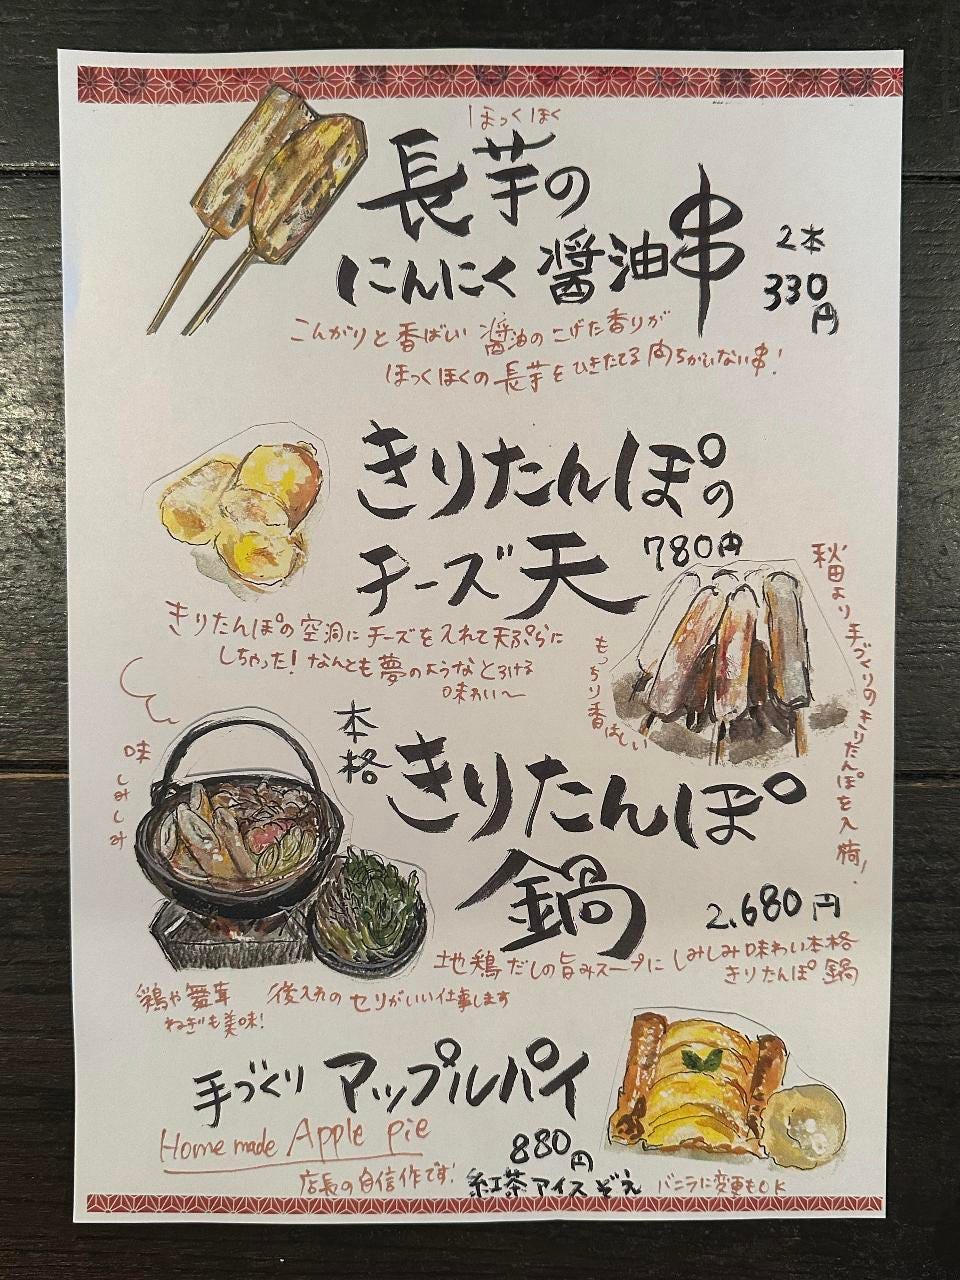 ほっくほく
長芋の
にんにく醤油串
2本
330円
こんがりと香ばい 醤油のこげた香りが
ほっくほくの長芋をひきたてる まちがいない串!
きりたんぽの
チーズ天
780円
きりたんぽの空洞にチーズを入れて天ぷらに
しちゃった!なんとも夢のようなとろける
味わい〜
秋田より手づくりのきりたんぽを入荷!
もっちり香ばしい
味しみしみ
本格
きりたんぽ
鍋
2,680円
地鶏だしの旨みスープにしみしみ味わい本格
きりたんぽ鍋
鶏や舞茸
ねぎも美味!
後入れのセリがいい仕事します
手づくり アップルパイ
Home made Apple pie
880円
店長の自信作です!
紅茶アイスぞえ
バニラに変更もOK